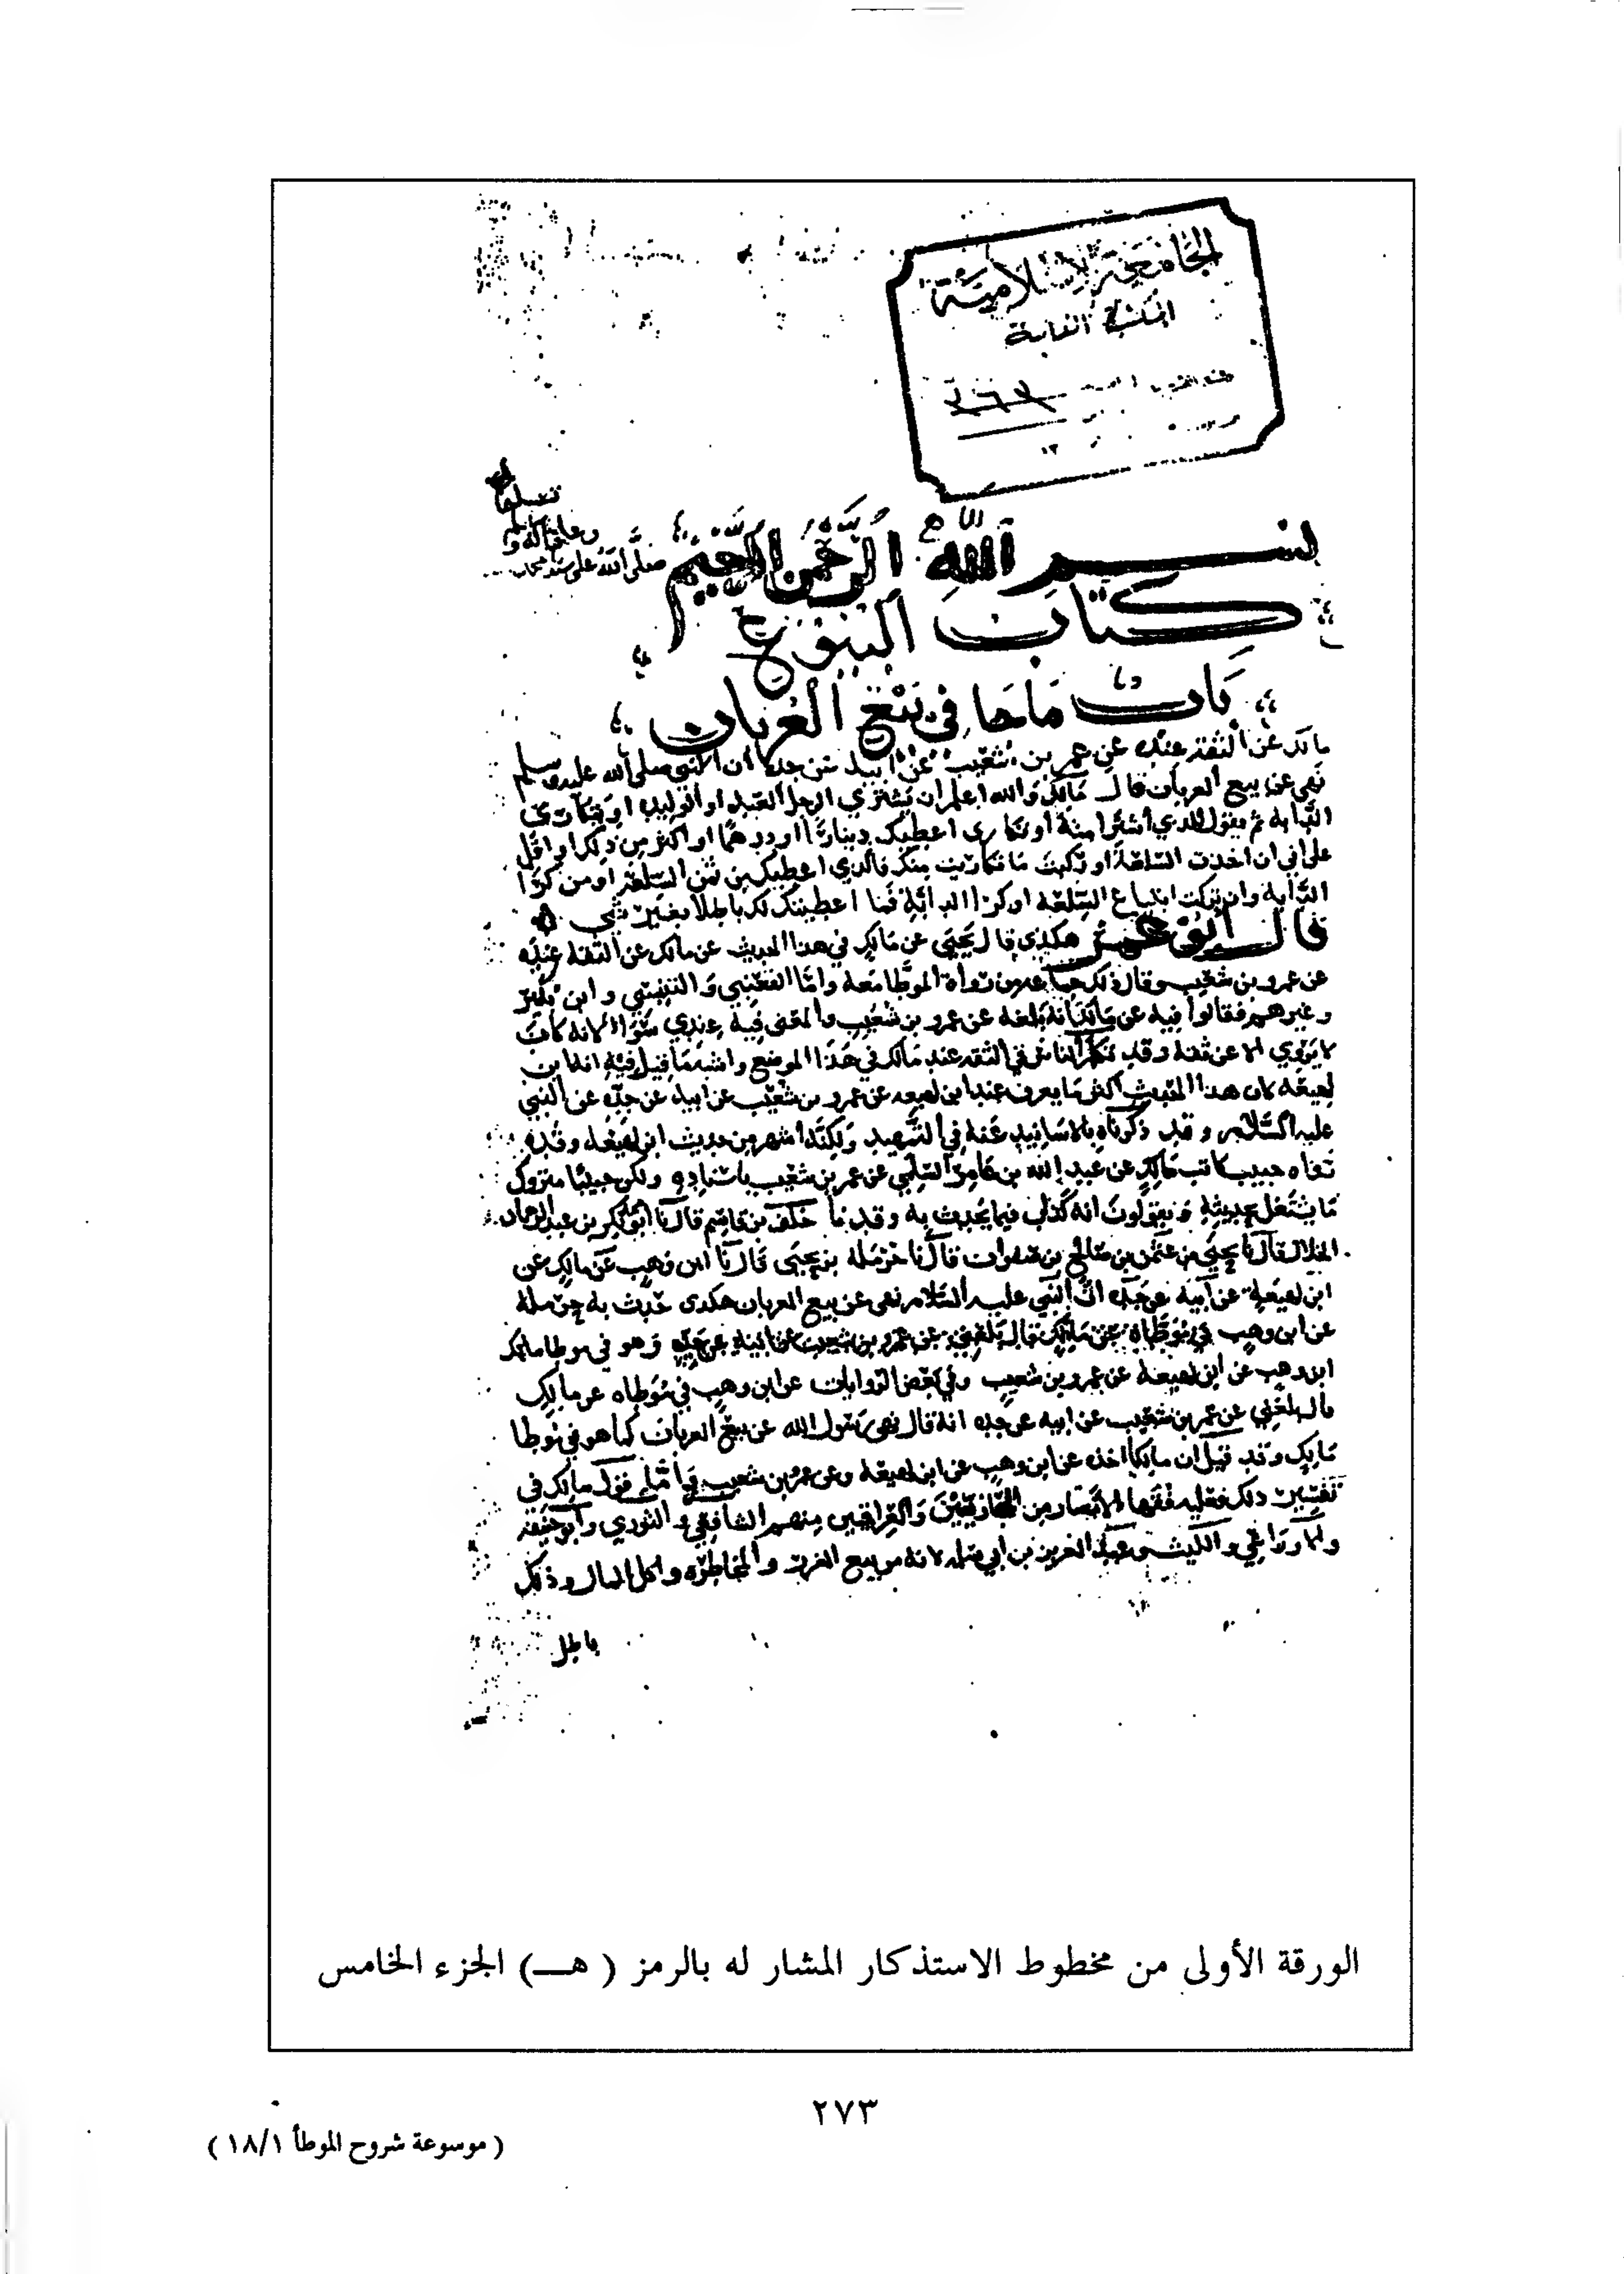 الجامعة الإسلامية
المكتبة العامة
تسليما
وعلى آله و
صلى الله على سيدنا محمد
بسم الله الرحمن الرحيم
كتاب البيوع
باب ما جا في بيع العربان
مالك عن الثقة عنده عن عمرو بن شعيب عن أبيه عن جده أن النبي صلى الله عليه وسلم
نهى عن بيع العربان قال مالك والله اعلم ان يشتري الرجل العبد او الوليدة او يتكارى
الدابة ثم يقول للذي أشترا منه او تكارى اعطيك دينارا او درهما او أكثر من ذلك او اقل
على اني ان اخذت السلعة او ركبت ما تكاريت منك فالذي اعطيك من ثمن السلعة او من كرا
الدابة وان تركت ابتياع السلعة او كرا الدابة فما اعطيتك لك باطلا بغير شي
قال أبو عمر هكذي قال يحيى عن مالك في هذا الحديث عن مالك عن الثقة عنده
عن عمرو بن شعيب وقال ذلك جماعة من رواة الموطا معه واما القعنبي والتنيسي وابن بكير
وغيرهم فقالوا فيه عن مالك انه بلغه عن عمرو بن شعيب والمعنى فيه عندي سوا لانه كان
لا يروي الا عن ثقة وقد تكلم الناس في الثقة عند مالك في هذا الموضع واشبه ما قيل فيه انه ابن
لهيعة لان هذا الحديث أكثر ما يعرف عند ابن لهيعه عن عمرو بن شعيب عن ابيه عن جده عن النبي
عليه السلام وقد ذكرناه بالاسانيد عنه في التمهيد ولكنه اشهر من حديث ابن لهيعه وقد
رواه حبيب كاتب مالك عن عبد الله بن عامر الاسلمي عن عمرو بن شعيب باسناده ولكن حبيبا متروك
ما يشتغل بحديثه ويقولون انه كذاب فيما يحدث به وقد نا خلف بن قاسم قال نا ابو بكر بن عبد الرحمان
الخلال قال نا يحيى بن عثمن بن صالح بن صفوان قال نا حرملة بن يحيى قال نا ابن وهب عن مالك عن
ابن لهيعة عن ابيه عن جده ان النبي عليه السلام نهى عن بيع العربان هكدى حدث به حرملة
عن ابن وهب في موطاه عن مالك قال بلغني عن عمرو بن شعيب عن ابيه عن جده وهو في موطا مالك
ابن وهب عن ابن لهيعة عن عمرو بن شعيب وفي بعض الروايات عن ابن وهب في موطاه عن مالك
قال بلغني عن عمرو بن شعيب عن ابيه عن جده انه قال نهى رسول الله عن بيع العربان كما هو في موطا
مالك وقد قيل ان مالكا اخذه عن ابن وهب عن ابن لهيعة وعن عمرو بن شعيب واما قول مالك في
تفسير ذلك فعليه فقها الامصار من الحجازيين والعراقيين منهم الشافعي والثوري وأبو حنيفة
والاوزاعي والليث وعبد العزيز بن ابي سلمه لانه من بيع الغرر والمخاطرة واكل المال وذلك
باطل
الورقة الأولى من مخطوط الاستذكار المشار له بالرمز ( هـ ) الجزء الخامس
٢٧٣
( موسوعة شروح الموطأ ١٨/١ )